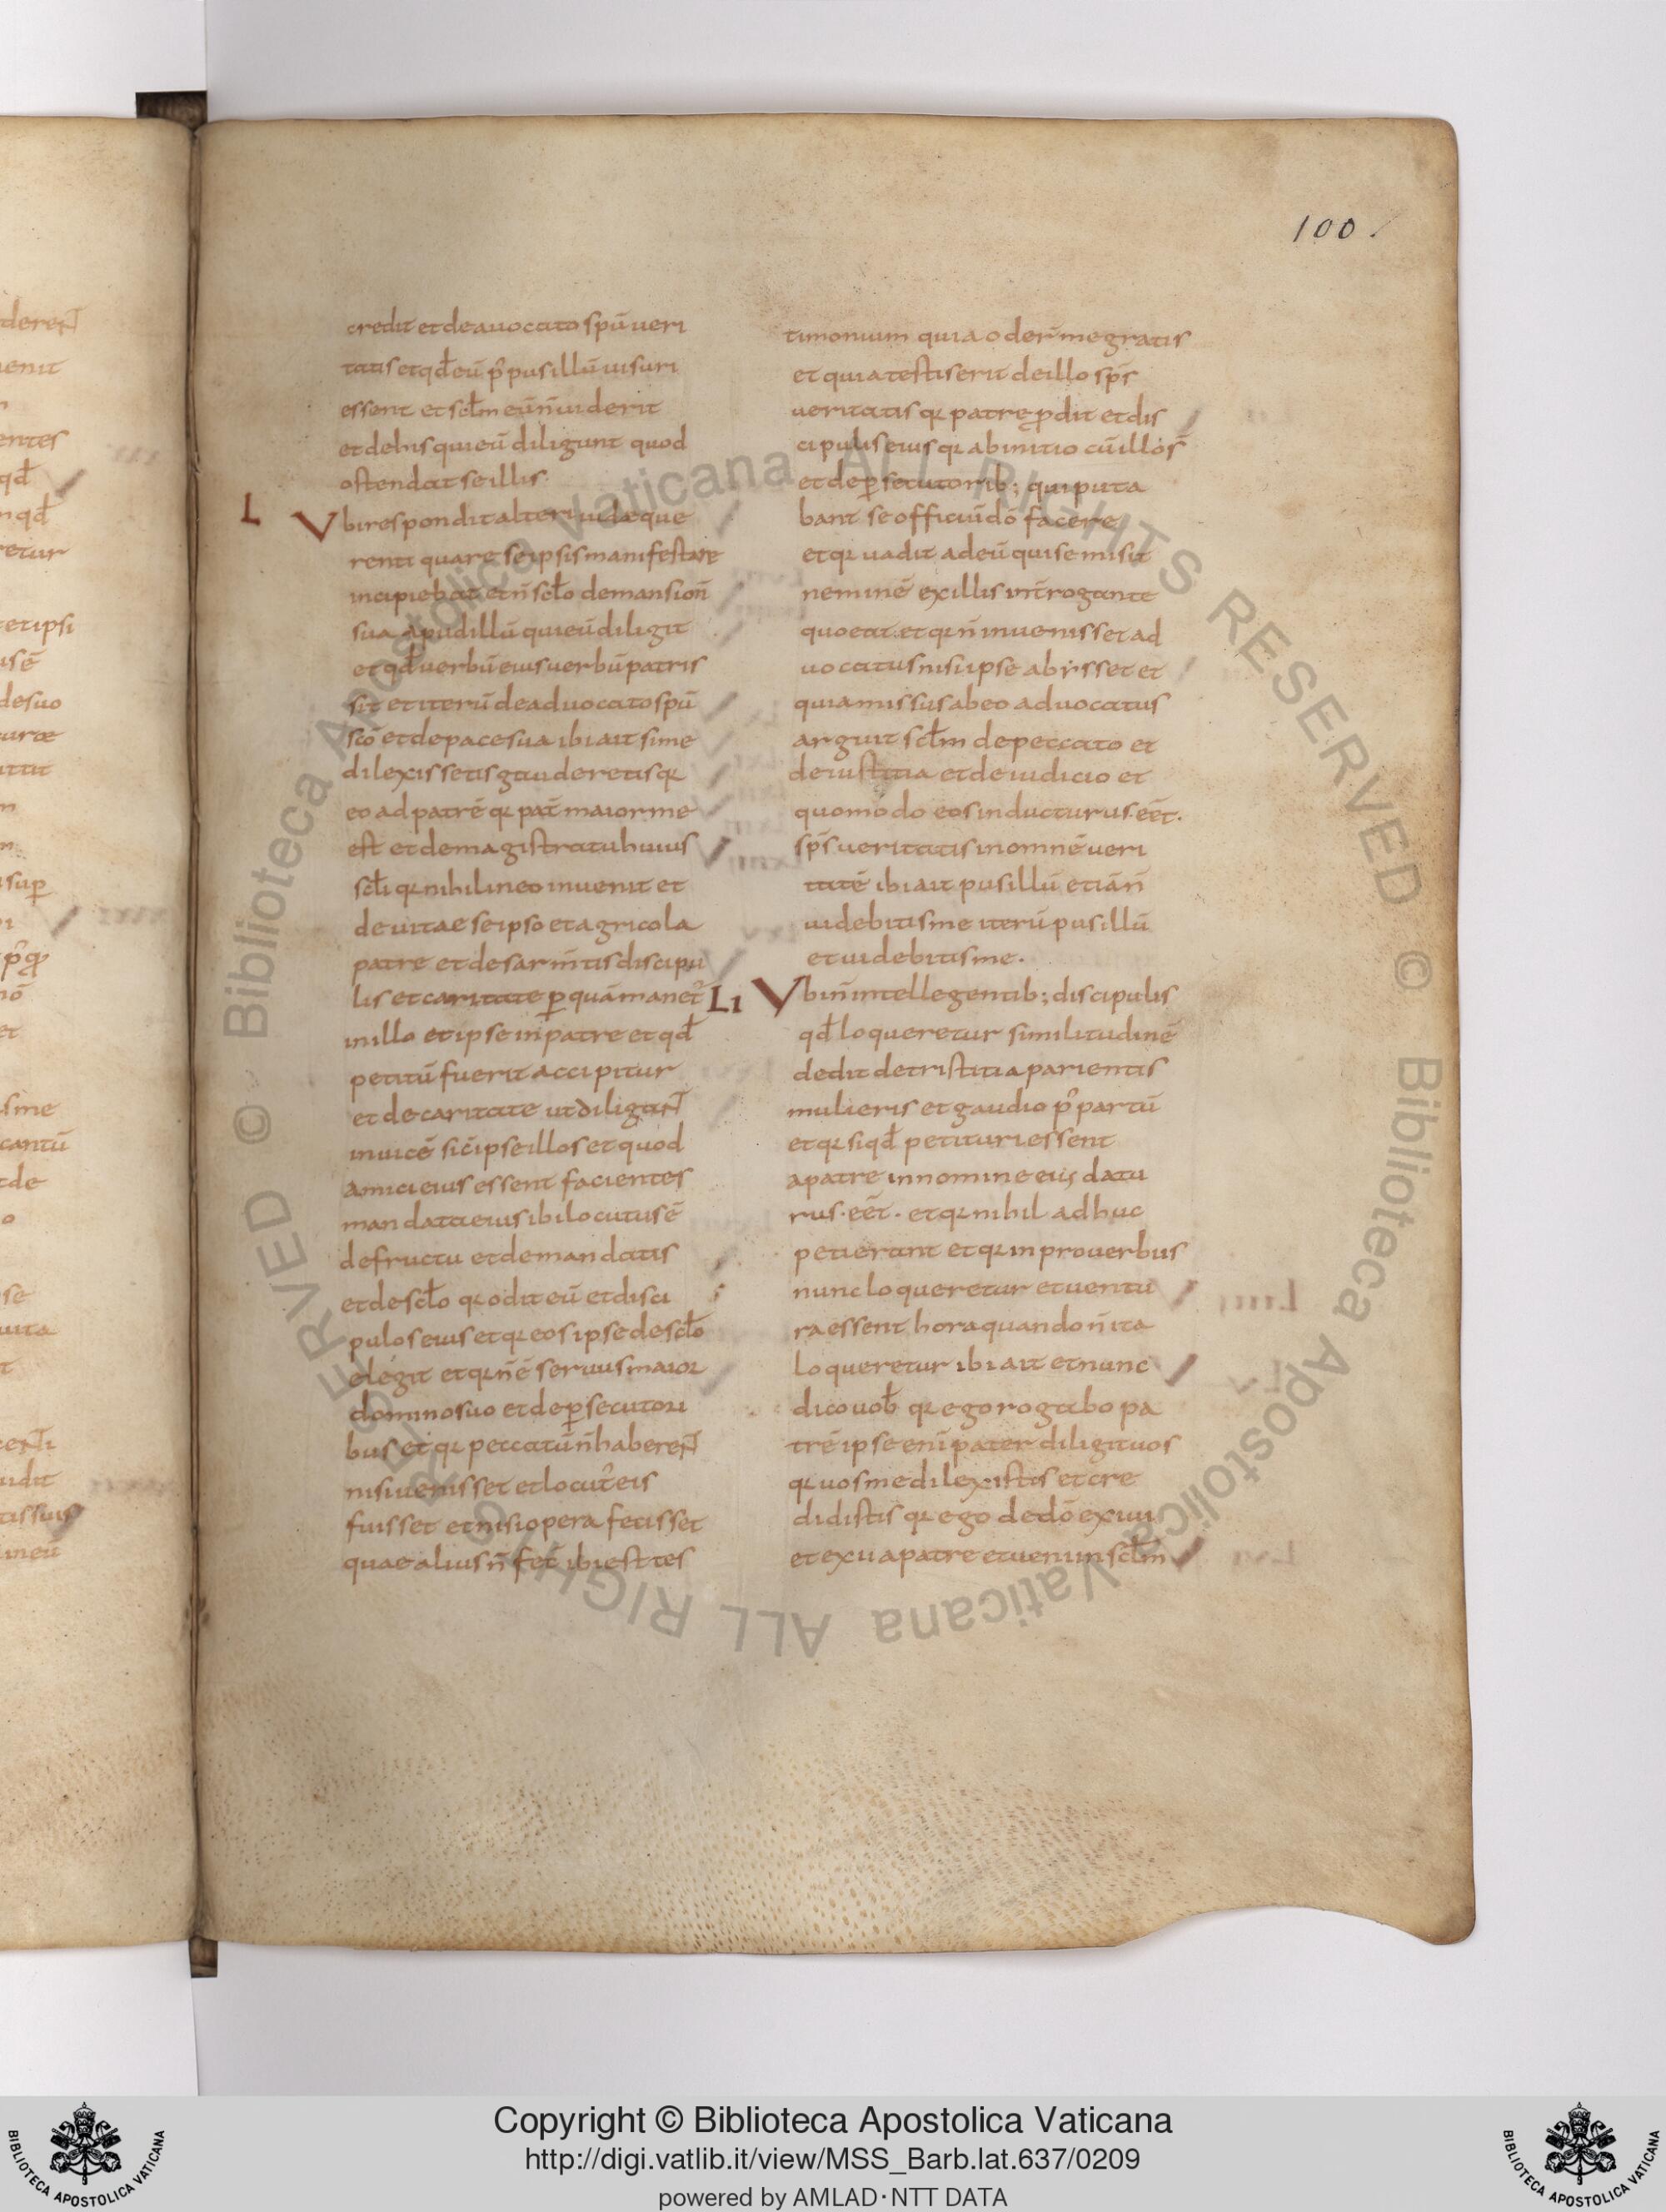 100.
credit et de auocato spū ueri
tatis et qđ eū p̉ pusillū uisuri
essent et scl̄m eū n̄ uiderit
et de his qui eū diligunt quod
ostendat se illis·
L Vbi respondit alteri iudae que
renti quare se ipsis manifestare
incipiebat et n̄ scl̄o de mansion̄
sua apud illū qui eū diligit
et qđ uerbū eius uerbū patris
sit et iterū de aduocato spū
sc̄o et de pace sua ibi ait si me
dilexissetis gauderetis qꝛ
eo ad patrē qꝛ pat̄ maior me
est et de magistratu huius
scl̄i qꝛ nihil in eo inuenit et
de uitae se ipso et agricola
patre et de sarm̄tis discipu
lis et caritate ꝑ quā manet̉
in illo et ipse in patre et qđ
petitū fuerit accipitur
et de caritate ut diligant
inuicē sic̄ ipse illos et quod
amici eius essent facientes
mandata eius ibi locutus ē
de fructu et de mandatis
et de scl̄o qꝛ odit eū et disci
pulos eius et qꝛ eos ipse de scl̄o
elegit et qꝛ n̄ ē seruus maior
domino suo et de ꝑsecutori
bus et qꝛ peccatū n̄ haberent
nisi uenisset et locut̉ eis
fuisset et nisi opera fecisset
quae alius n̄ fec̄ ibi est tes
timonium quia oder̄ me gratis
et quia testis erit de illo sp̄s
ueritatis qꝛ patre ꝓdit et dis
cipulis eius qꝛ ab initio cū illo s̄
et de ꝑsecutorib; qui puta
bant se officiū dō facere
et qꝛ uadit ad eū qui se misit
neminē ex illis int̄rogante
quo eat. et qꝛ n̄ inuenisset ad
uocatus nisi ipse abisset et
quia missus ab eo aduocatus
arguit scl̄m de peccato et
de iustitia et de iudicio et
quomodo eos inducturus·eēt·
sp̄s ueritatis in omnē ueri
tatē ibi ait pusillū et iā n̄
uidebitis me iterū pusillū
et uidebitis me·
LI Vbi n̄ intellegentib; discipulis
qđ loqueretur similitudinē
dedit de tristitia parientis
mulieris et gaudio p̉ partū
et qꝛ siqđ petituri essent
a patre in nomine eius datu
rus·eēt· et qꝛ nihil adhuc
petierant et qꝛ in prouerbiis
nunc loqueretur et uentu
ra essent hora quando n̄ ita
loqueretur ibi ait et nunc
dico uob̄ qꝛ ego rogabo pa
trē ipse enī pater diligit uos
qꝛ uos me dilexistis et cre
didistis qꝛ ego de dō exiui
et exii a patre et ueni in scl̄m
Copyright © Biblioteca Apostolica Vaticana
http://digi.vatlib.it/view/MSS_Barb.lat.637/0209
powered by AMLAD·NTT DATA
BIBLIOTECA APOSTOLICA VATICANA
BIBLIOTECA APOSTOLICA VATICANA
© Biblioteca Apostolica Vaticana ALL RIGHTS RESERVED © Biblioteca Apostolica Vaticana ALL RIGHTS RESERVED